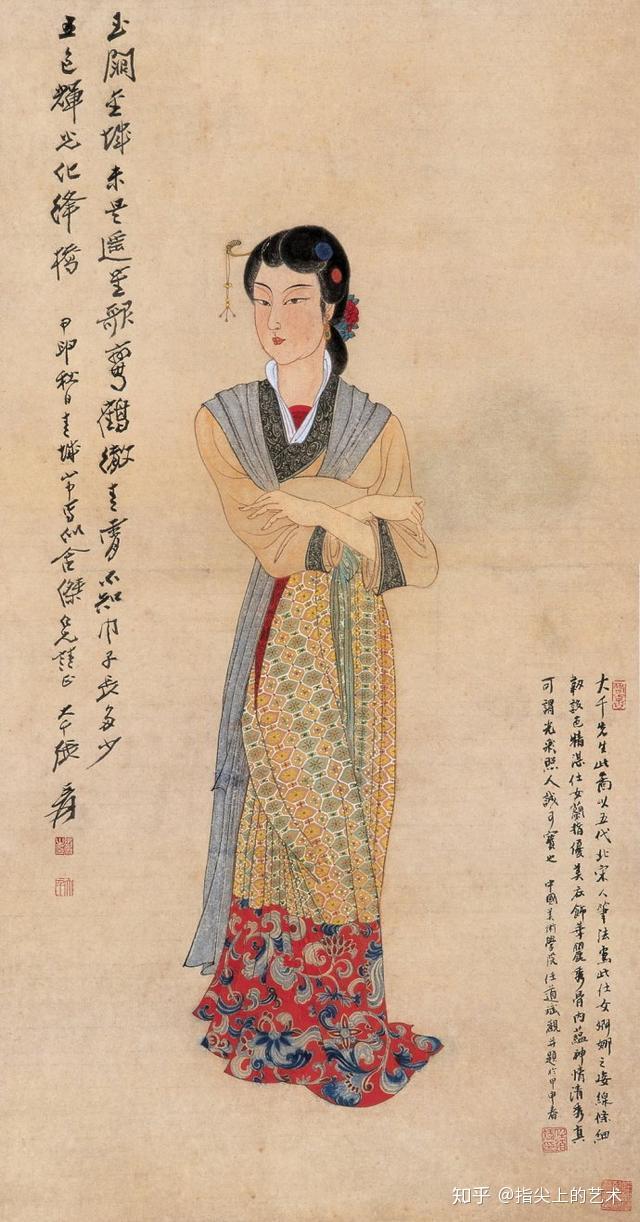 玉闕金城未是遥笙歌鸞鶴徹青霄不知巾子長多少
五色輝光化絳橋
甲申秋日青城山寫似傑仁兄請正 大千張爰
大千先生此圖以五代北宋人筆法寫此仕女婀娜之姿線條細
勁設色精湛仕女蘭指優美衣飾華麗秀骨內蘊神情清秀真
可謂光彩照人誠可寶也 中國美術學院任道斌觀并題於甲申春
知乎 @指尖上的艺术